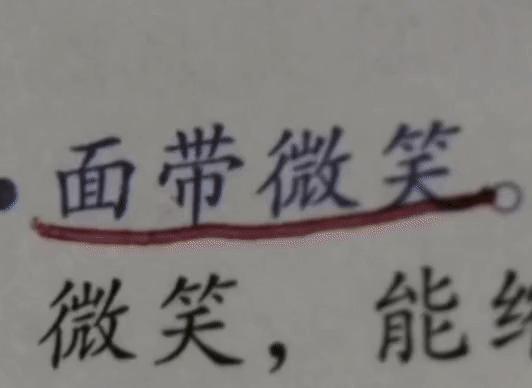 面带微笑。
微笑，能